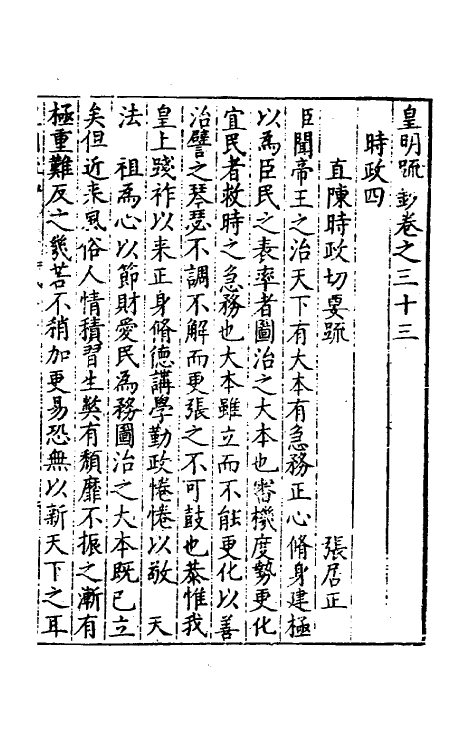 皇明疏鈔卷之三十三
時政四
直陳時政切要疏 張居正
臣聞帝王之治天下有大本有急務正心脩身建極
以為臣民之表率者圖治之大本也審機度勢更化
宜民者救時之急務也大本雖立而不能更化以善
治譬之琴瑟不調不解而更張之不可鼓也恭惟我
皇上踐祚以来正身脩德講學勤政惓惓以敬 天
法 祖為心以節財愛民為務圖治之大本既已立
矣但近来風俗人情積習生獘有頹靡不振之漸有
極重難反之幾若不稍加更易恐無以新天下之耳